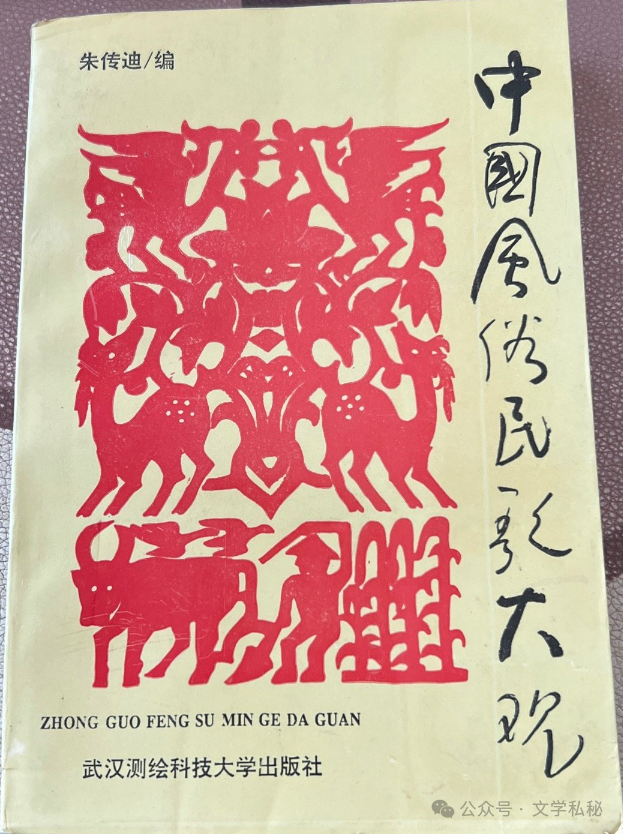 朱传迪/编
中國风俗民歌大观
ZHONG GUO FENG SU MIN GE DA GUAN
武汉测绘科技大学出版社
公众号·文学私秘